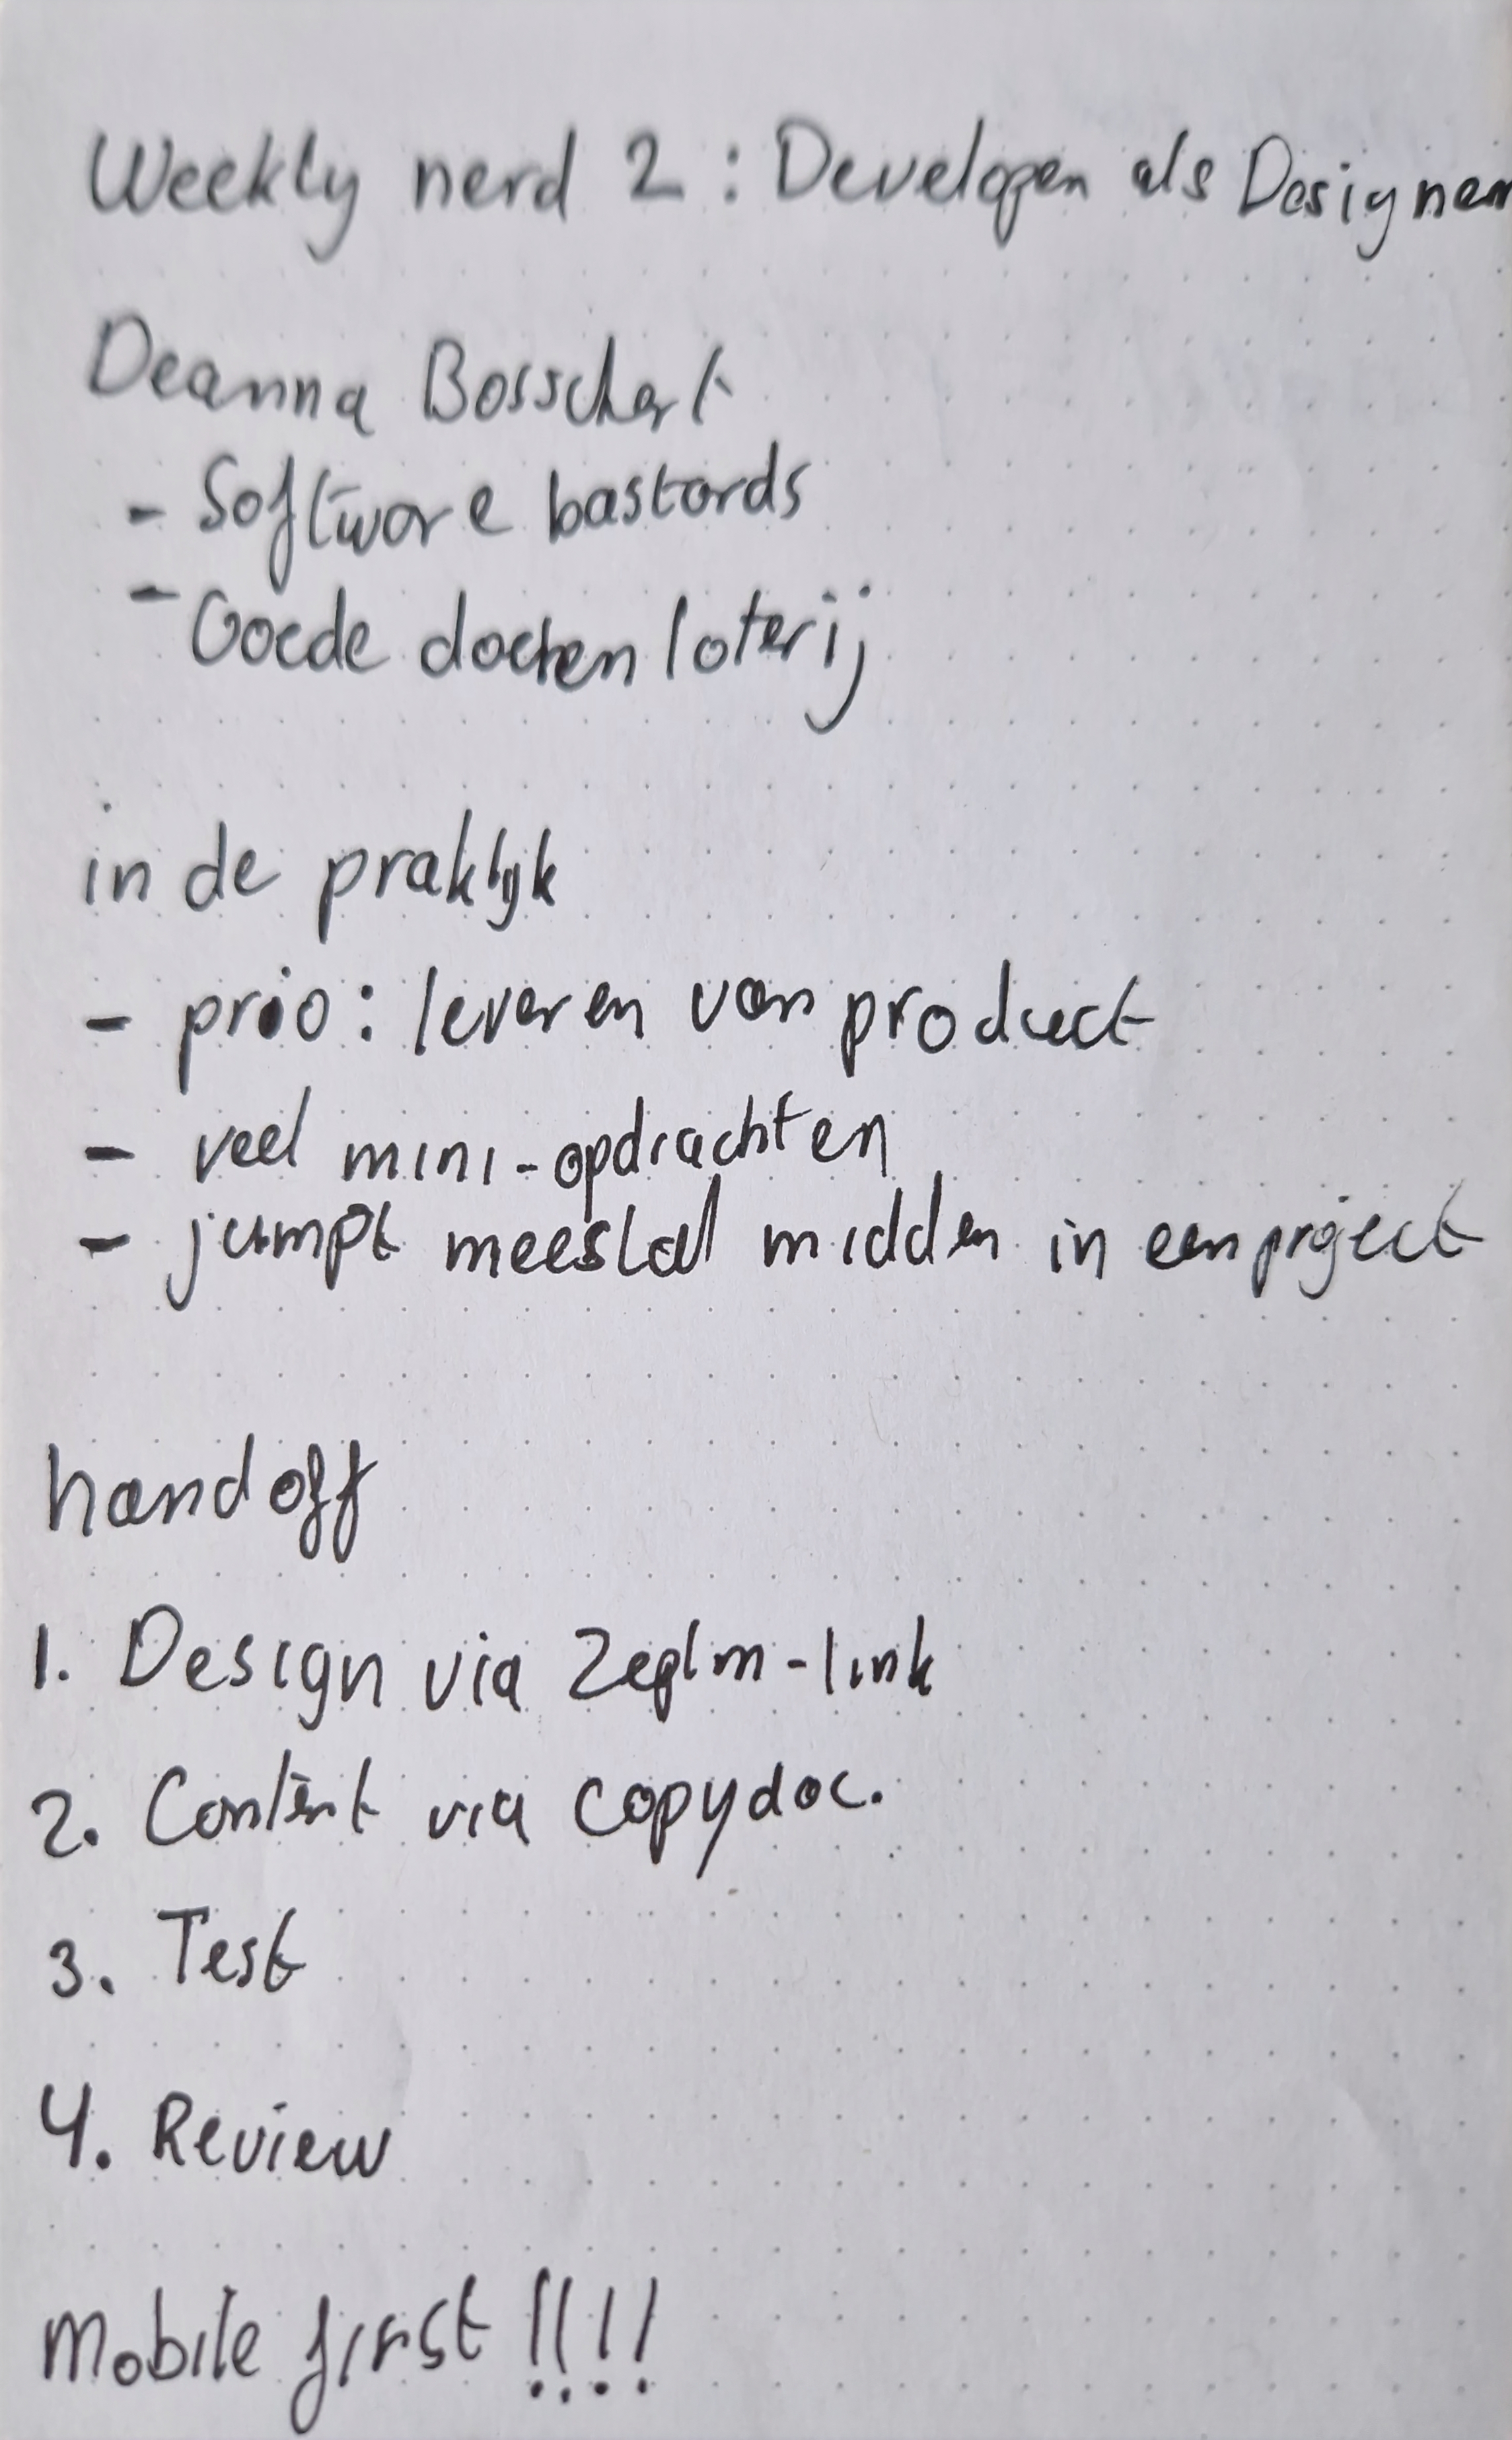 Weekly nerd 2 : Developen als Designer
Deanna Bosschert
- Software bastards
- Goede doelen loterij
in de praktijk
- prio: leveren van product
- veel mini-opdrachten
- jumpt meestal midden in een project
handoff
1. Design via Zeplin-link
2. Content via copydoc.
3. Test
4. Review
Mobile first !!!!